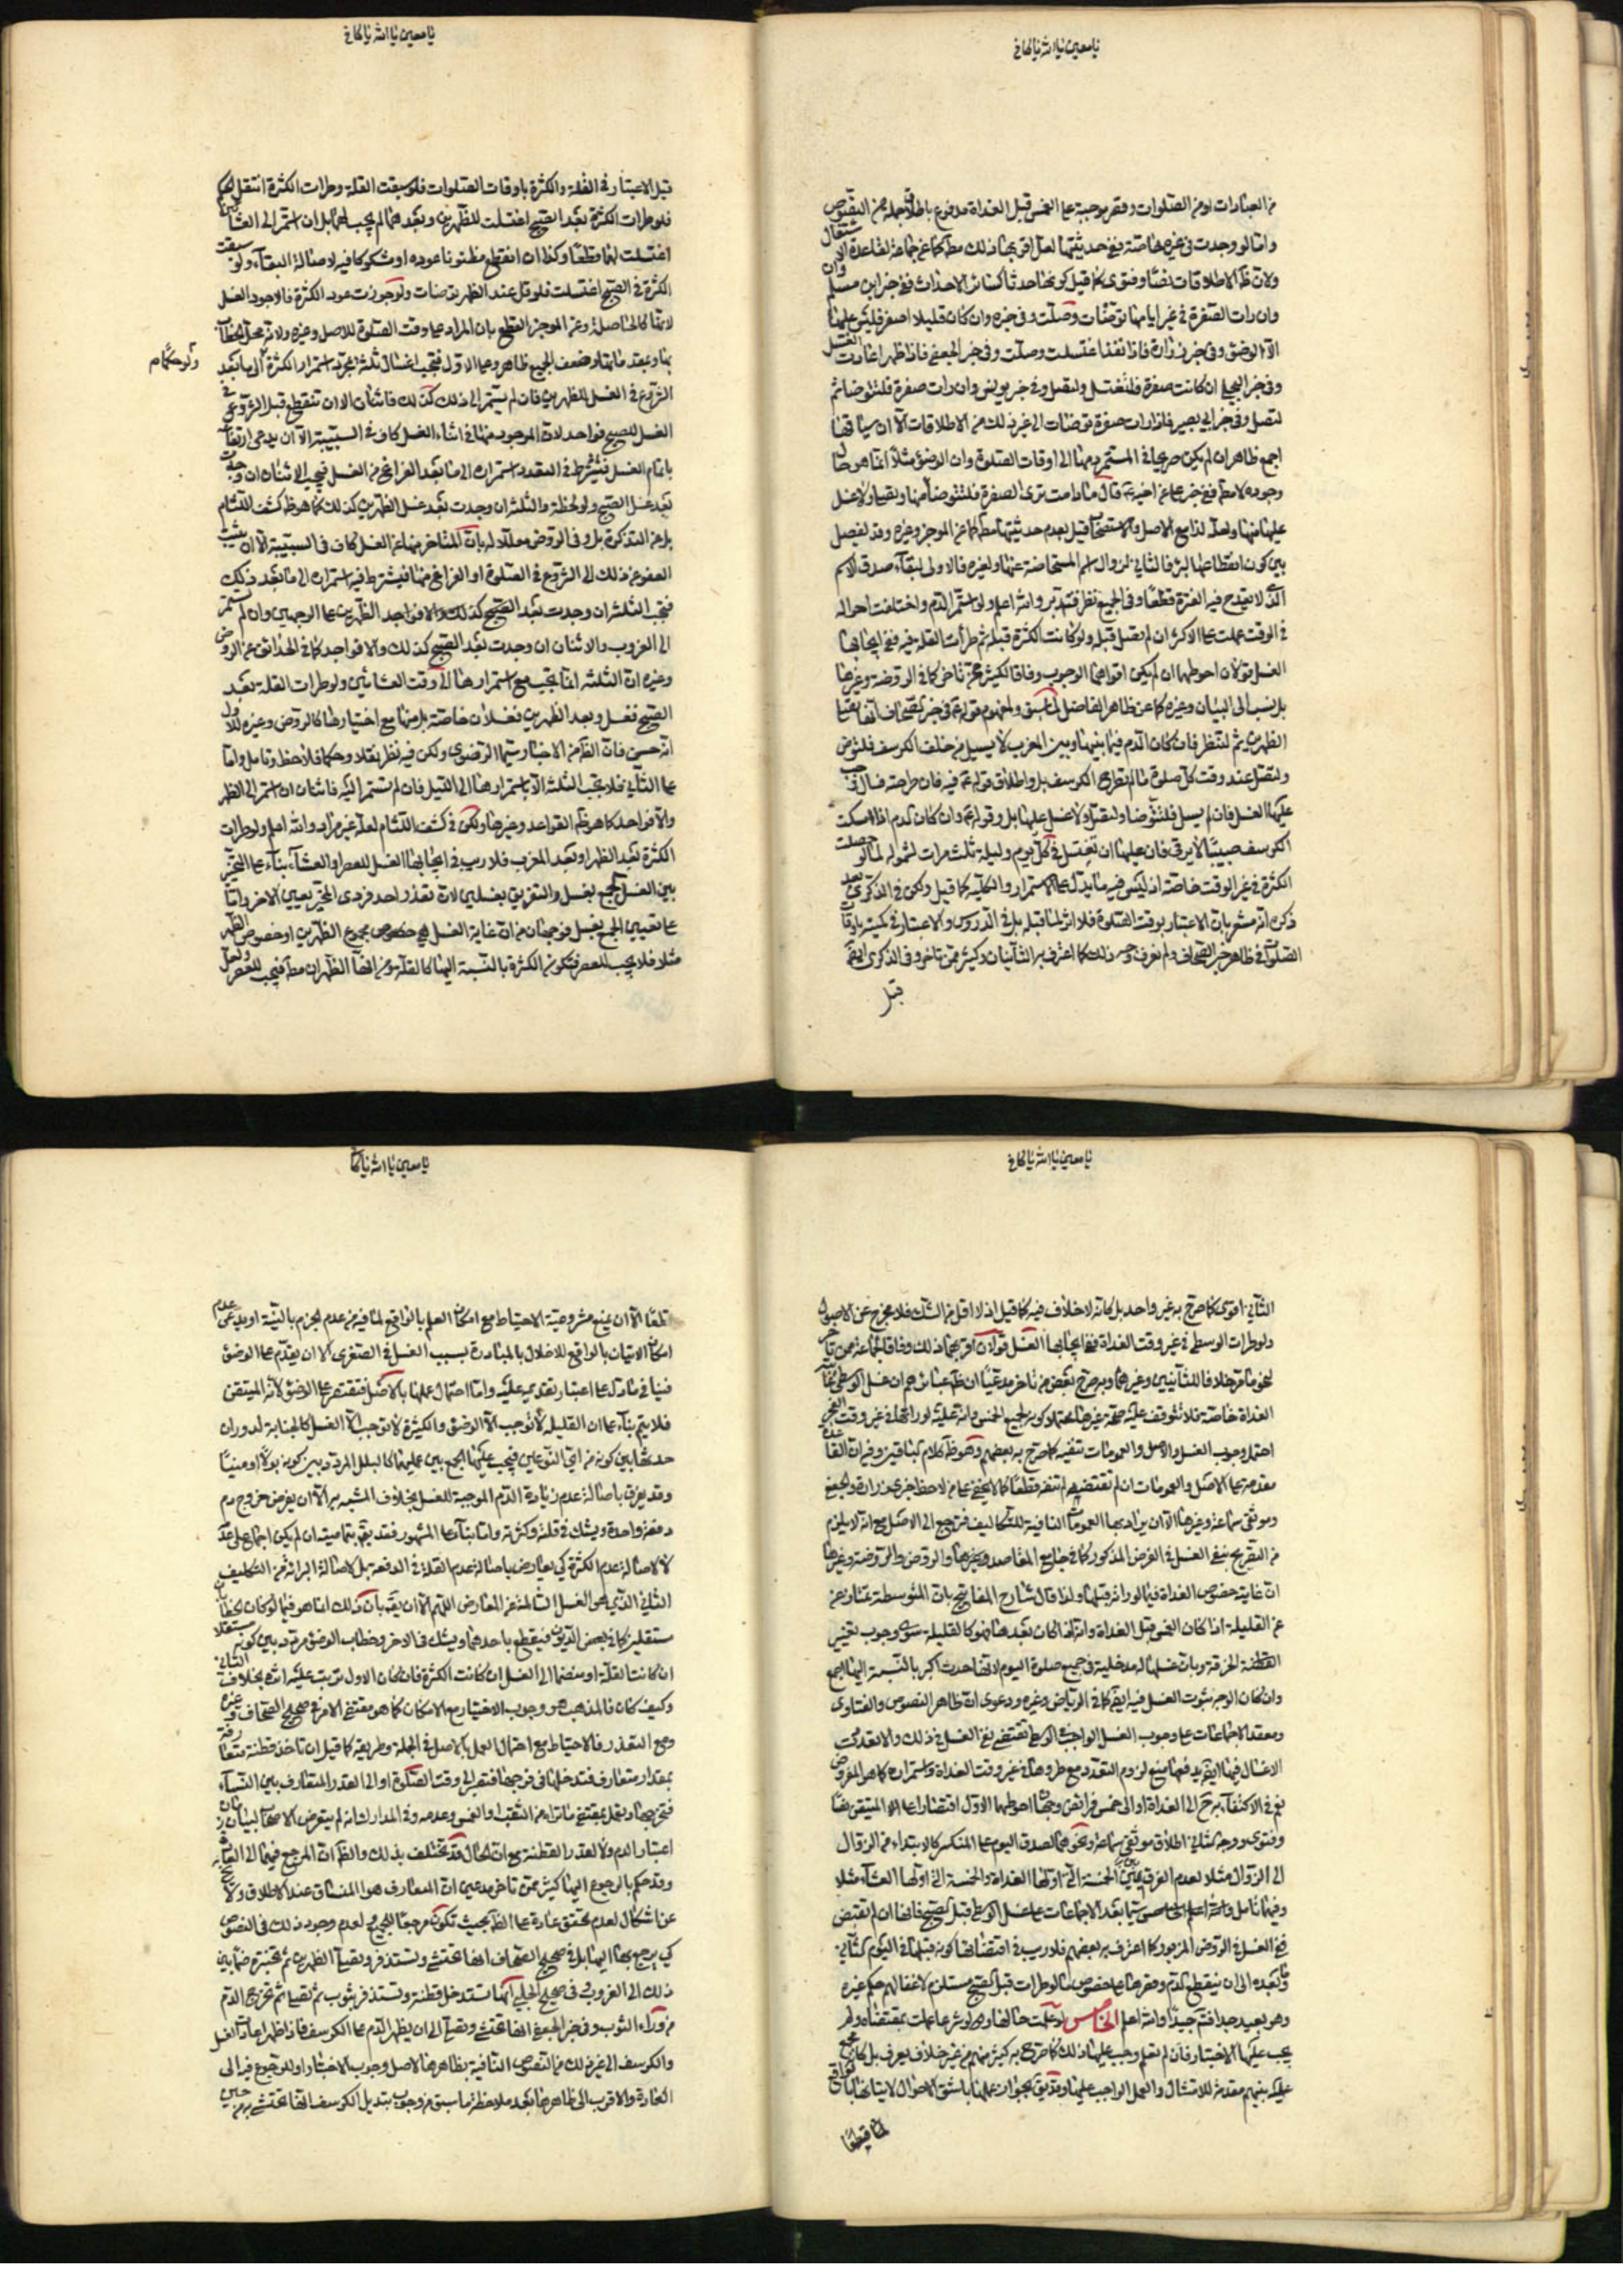 يا معين يا الله يا كافي
من العبارات او من الصلوات وقصر موجبية على الغمس قبل الغداة مدفوع باطلاق جملة من النصوص
واما لو وجدت في غيره خاصة ففي حدثيتها لعل اقربها ذلك مطلقا كما عن جماعة لقاعدة الاشتغال
ولان ظ الاطلاقات نصا وفتوى كما قيل كونها حدثا كسائر الاحداث ففي خبر ابن مسلم وان
وان رات الصفرة في غير ايامها توضات وصلت وفي خبره وان كان قليلا اصفر فليس عليها
الا الوضوء وفي خبر زرارة فاذا نفذ اغتسلت وصلت وفي خبر الجعفي فاذا ظهر اعادت الغسل
وفي خبر البجلي ان كانت صفرة فلتغتسل ولتصل وفي خبر يونس وان رات صفرة فلتتوضا ثم
لتصل وفي خبر ابي بصير فاذا رات صفرة توضات الى غير ذلك من الاطلاقات الا ان سياقها
اجمع ظاهر ان لم يكن صريحا في المستمر دمها الى اوقات الصلوة وان الوضوء مثلا انما هو حال
وجوده لا مطلقا ففي خبر علي عن اخيه قال ما دامت ترى الصفرة فلتتوضا منها وتصلي ولا غسل
عليها منها ولعله لذا مع الاصل والاستصحاب قيل بعدم حدثيتها مطلقا كما عن الموجز وغيره وقد يفصل
بين كون انقطاعها لبرء فالثاني لزوال اسم المستحاضة عنها ولغيره فالاولى لبقاء صدق الاسم
الذي لا يقدح فيه الفترة قطعا وفي الجميع نظر فتدبر والله اعلم ولو استمر الدم واختلفت احواله
في الوقت عملت على الاكثر ان لم تصل قبله ولو كانت الكثرة قبله ثم طرأت القلة فيه ففي ايجابها
الغسل قولان احوطهما ان لم يكن اقواهما الوجوب وفاقا لكثير ممن تاخر كما في الروضة وغيرها
الظهرين ثم لتنظر فان كان الدم فيما بينها وبين المغرب لا يسيل من خلف الكرسف فلتتوض
ولتصل عند وقت كل صلوة ما لم تطرح الكرسف بل واطلاق قوله فيه فان طرحته فسال وجب
عليها الغسل فان لم يسل فلتتوضا ولتصل ولا غسل عليها بل وقوله وان كان الدم اذا امسكت
الكرسف صبيبا لا يرقى فان عليها ان تغتسل في كل يوم وليلة ثلث مرات لشموله لما لو حصلت
الكثرة في غير الوقت خاصة اذ ليس فيه ما يدل على الاستمرار والكلية كما قيل ولكن في الذكرى بعد
ذكره انه مشعر بان الاعتبار بوقت الصلوة فلا اثر لما قبله بل في الدروس والاعتبار في كميته باوقات
الصلوات في ظاهر خبر الصحاف ولم نعرف وجه ذلك كما اعترف به الثانيان وكثير ممن تاخر وفي الذكرى ايضا
قيل
يا معين يا الله يا كافي
قيل الاعتبار في القلة والكثرة باوقات الصلوات فلو سبقت القلة وطرات الكثرة انتقل الحكم
فلو طرات الكثرة بعد الصبح اغتسلت للظهرين وبعدهما لم يجب لهما بل ان استمر الى العشائين
اغتسلت لهما قطعا وكذا ان انقطع مظنونا عوده او مشكوكا فيه لاصالة البقاء ولو سبقت
الكثرة في الصبح اغتسلت فلو قل عند الظهر توضات ولو جوزت عود الكثرة فالاجود الغسل
لانها كالحاصلة وعن الموجز القطع بان المراد بها وقت الصلوة للاصل وغيره ولانه محل الخطاب
ولو حكما م
الشروع في الغسل للظهرين فان لم يستمر الى ذلك كذلك فاثنان الا ان تنقطع قبل الشروع في
الغسل للصبح فواحد لان الموجود منها في اثناء الغسل كاف في السببية الا ان يدعى ارتفاعه
باتمام الغسل فيشترط في التعدد استمراره الى ما بعد الفراغ من الغسل فيجب الاثنان ان وجدت
بعد غسل الصبح ولو لحظة والثلثة ان وجدت بعد غسل الظهرين كذلك كما هو ظ كشف اللثام
بل عن التذكرة بل وفي الروض معللا له بان المتاخر منها عن الغسل كاف في السببية الا ان يثبت
العفو عن ذلك الى الشروع في الصلوة او الفراغ منها فيشترط فيه استمراره الى ما بعد ذلك
فتجب الثلثة ان وجدت بعد الصبح كذلك والا فواحد للظهرين على الوجهين وان لم تستمر
الى الغروب والاثنان ان وجدت بعد الصبح كذلك والا فواحد كما في الحدائق عن الروض
وغيره ان الثلثة انما تجب مع استمرارها الى وقت العشائين ولو طرات القلة بعد
الصبح فغسل وبعد الظهرين فغسلان خاصة بل منها مع اختيارها كالروض وعيره للاول
على الثاني فلا تجب الثلثة الا باستمرارها الى الليل فان لم تستمر اليه فاثنان ان استمر الى الظهر
والا فواحد كما هو ظ القواعد وغيرها ولكن في كشف اللثام لعله غير مراد والله اعلم ولو طرات
الكثرة بعد الظهر او بعد المغرب فلا ريب في ايجابها الغسل للعصر او العشاء بناء على التخيير
بين الغسل للجمع بغسل والتفريق بغسلين لانه تعذر احد فردي المخير يعين الاخر واما
على تعيين الجمع بغسل فوجهان من ان غاية الغسل هي خصوص مجموع الظهرين او خصوص الظهر
مثلا فلا يجب للعصر فتكون الكثرة بالنسبة اليها كالقلة ومن انها الظهران مطلقا فيجب للعصر ولعل
يا معين يا الله يا كافي
الثاني اقوى كما صرح به غير واحد بل كانه لا خلاف فيه كما قيل اذ لا اقل من الشك فلا مخرج عن الاصول
ولو طرات الوسطى في غير وقت الغداة ففي ايجابها الغسل قولان اقربهما ذلك وفاقا لجماعة ممن تاخر
الغداة خاصة فلا تتوقف عليه صحة غيرها
احتمل وجوب الغسل والاصل والعمومات تنفيه كما صرح به بعضهم وهو ظ كلام الباقين وفيه ان القاعدة
مقدمة على الاصل والعمومات ان لم تقتضيه لم تنفه قطعا كما لا يخفى على من لاحظ خبري زرارة والجعفي
وموثق سماعة وغيرها الا ان يراد بها العمومات النافية للتكاليف فترجع الى الاصل مع انه لا يلزم
من التصريح بنفي الغسل في الفرض المذكور كما في جامع المقاصد وغيرها والروض والروضة وغيرها
ان غايته خصوص الغداة فيما لو راته قبلها ولذا قال شارح المفاتيح بان المتوسطة تمتاز عن
عن القليلة اذا كان الغمس قبل الغداة وانه اذا كان بعدها فهو كالقليلة سوى وجوب تغيير
القطنة الخرقة وبان غسلها له مدخلية في جميع صلوة اليوم لانها حدث اكبر بالنسبة اليها اجمع
وان كان الوجه ثبوت الغسل فيه ايضا كما في الرياض وغيره ودعوى ان ظاهر النصوص والفتاوى
ومعقد الاجماعات على وجوب الغسل الواحد في الوسطى تقتضي نفي الغسل في ذلك والا لتعددت
الاغسال فيها ايضا يدفعها منع لزوم التعدد مع طروها في غير وقت الغداة واستمراره كما هو المفروض
نعم في الاكتفاء به الى الغداة او الى خمس فرائض وجهان احوطهما الاول اقتصارا على المتيقن نصا
وفتوى ووجه الثاني اطلاق موثق سماعة ونحوهما لصدق اليوم على المنكسر كالابتداء من الزوال
الى الزوال مثلا لعدم الفرق بين الخمسة التي اولها الغداة والخمسة التي اولها العشاء مثلا
وبعده الى ان ينقطع الدم
وهو بعيد جدا فتدبر جيدا والله اعلم الخامس لو علمت حالها ولو شرعا عملت بمقتضاه ولم
يجب عليها الاختبار فان لم تعلم وجب عليها ذلك كما صرح به كثير منهم من غير خلاف يعرف بل كانه مجمع
عليه بينهم مقدمة للامتثال والعمل الواجب عليها
لها قطعا
يا معين يا الله يا كافي
لها الا ان يمنع مشروعية الاحتياط مع امكان العلم بالواقع لما فيه من عدم الجزم بالنية او يدعى عدم
امكان الاتيان بالواقع للاخلال بالمبادرة بسبب الغسل في الصغرى الا ان يقدم على الوضوء
فينافي ما دل على اعتبار تقديمه عليه واما احتمال عملها بالاصل فتقتصر على الوضوء لانه المتيقن
فلا يتم بناء على ان القليلة لا توجب الا الوضوء والكثيرة لا توجب الا الغسل كالجنابة لدوران
حدثها بين كونه من اي النوعين فيجب عليها الجمع بين عمليهما كالبلل المردد بين كونه بولا او منيا
وقد يفرق باصالة عدم زيادة الدم الموجبة للغسل بخلاف المشبه به الا ان يفرض خروج دم
دفعة واحدة ويشك في قلته وكثرته واما بناء على المشهور فقد يتجه بتماميته ان لم يكن اجماع على عدمه
لا لاصالة عدم الكثرة كي يعارض باصالة عدم القلة في الدفعة بل لاصالة البرائة من التكليف
الثاني الذي هو الغسل السالمة عن المعارض اللهم الا ان يقال بان ذلك انما هو فيما لو كان الخطابان
مستقلين كما في بعض الديون فيقطع باحدهما ويشك في الاخر وخطاب الوضوء مردد بين كونه مستقلا
ان كانت القلة او منضما الى الغسل ان كانت الكثرة فان كان الاول ترتب عليه اثره بخلاف الثاني
وكيف كان فالمذهب هو وجوب الاختبار مع الامكان كما هو مقتضى الامر في صحيح الصحاف وغيره
ومع التعذر فالاحتياط مع احتمال العمل بالاصل في الجملة وطريقه كما قيل ان تاخذ قطنة متعارفة
بمقدار متعارف فتدخلها في فرجها فتصبر الى وقت الصلوة او الى القدر المتعارف بين النساء
فتخرجها وتعمل بمقتضى ما تراه من الثقب او الغمس وعدمه وفي المدارك انه لم يتعرض الاصحاب لبيان زمان
اعتبار الدم ولا لقدر القطنة مع ان الحال قد تختلف بذلك والظ ان المرجع فيهما الى العادة
وقد حكم بالرجوع اليها كثير ممن تاخر مدعين ان المتعارف هو المنساق عند الاطلاق ولا يخلو
عن اشكال لعدم تحقق عادة على الظ بحيث تكون مرجعا للجميع ولعدم وجود ذلك في النصوص
كي يرجع بها اليها بل في صحيح الصحاف انها تحتشي وتستذفر وتصلي الظهرين ثم تختبر فيما بين
ذلك الى الغروب وفي صحيح الحلبي انها تستدخل قطنة وتستذفر بثوب ثم تصلي ثم تخرج الدم
من وراء الثوب وفي خبر الجعفي انها تحتشي وتصلي الى ان يظهر الدم على الكرسف فاذا ظهر اعادت الغسل
والكرسف الى غير ذلك من النصوص النافية بظاهرها لاصل وجوب الاختبار او للرجوع فيه الى
العادة والاقرب الى ظاهرها بعد ملاحظة ما سبق من وجوب تبديل الكرسف انها تحتشي به من حين